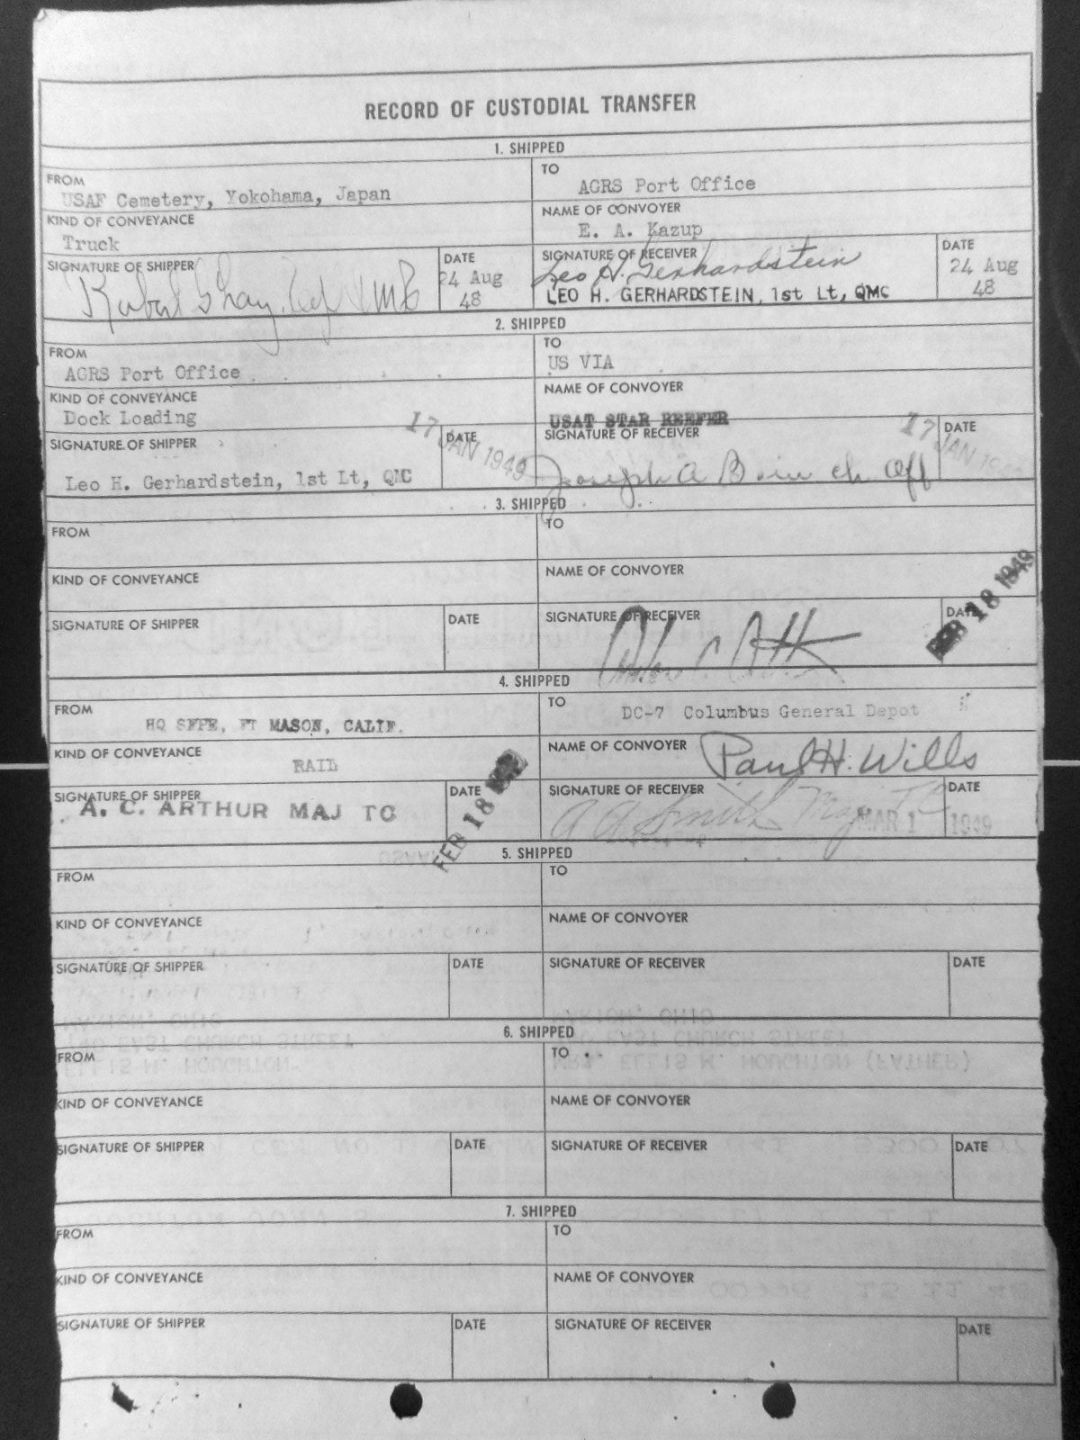 RECORD OF CUSTODIAL TRANSFER
1. SHIPPED
FROM
USAF Cemetery, Yokohama, Japan
TO
AGRS Port Office
KIND OF CONVEYANCE
Truck
NAME OF CONVOYER
E. A. Kazup
SIGNATURE OF SHIPPER
DATE
24 Aug
48
SIGNATURE OF RECEIVER
Leo H. Gerhardstein
LEO H. GERHARDSTEIN, 1st Lt, QMC
DATE
24 Aug
48
2. SHIPPED
FROM
AGRS Port Office
TO
US VIA
KIND OF CONVEYANCE
Dock Loading
NAME OF CONVOYER
USAT STAR REEFER
SIGNATURE OF SHIPPER
Leo H. Gerhardstein, 1st Lt, QMC
DATE
17 JAN 1949
SIGNATURE OF RECEIVER
Joseph A
DATE
17 JAN 194
3. SHIPPED
FROM
TO
KIND OF CONVEYANCE
NAME OF CONVOYER
SIGNATURE OF SHIPPER
DATE
SIGNATURE OF RECEIVER
DATE
FEB 18 1949
4. SHIPPED
FROM
HQ SFPE, FT MASON, CALIF.
TO
DC-7 Columbus General Depot
KIND OF CONVEYANCE
RAIL
NAME OF CONVOYER
Paul H. Wills
SIGNATURE OF SHIPPER
A. C. ARTHUR MAJ TC
DATE
FEB 18
SIGNATURE OF RECEIVER
Smith Maj TC
DATE
MAR 1 1949
5. SHIPPED
FROM
TO
KIND OF CONVEYANCE
NAME OF CONVOYER
SIGNATURE OF SHIPPER
DATE
SIGNATURE OF RECEIVER
DATE
6. SHIPPED
FROM
TO
KIND OF CONVEYANCE
NAME OF CONVOYER
SIGNATURE OF SHIPPER
DATE
SIGNATURE OF RECEIVER
DATE
7. SHIPPED
FROM
TO
KIND OF CONVEYANCE
NAME OF CONVOYER
SIGNATURE OF SHIPPER
DATE
SIGNATURE OF RECEIVER
DATE